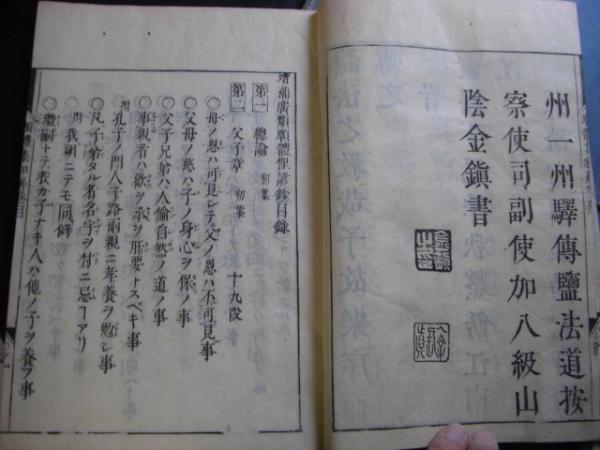 州一州驛傳鹽法道按
察使司副使加八級山
陰金鎭書
増補廣類
鈔目録
第一 總論 初葉
第二 父子章 初葉 十九段
○母ノ恩ハ可見シテ父ノ恩ハ不可見事
○父母ノ慈ハ子ノ身心ヲ保ノ事
○父子兄弟ハ人倫自然ノ道ノ事
○事親者ハ歓ヲ承ヲ肝要トスベキ事
○孔子ノ門人子路両親ニ孝養ヲ勉シ事
○凡子弟タル者名字ヲ付ニ忌コアリ
附我朝ニテモ同
○繼嗣トテ我カ子ナキ人ハ他ノ子ヲ養フ事